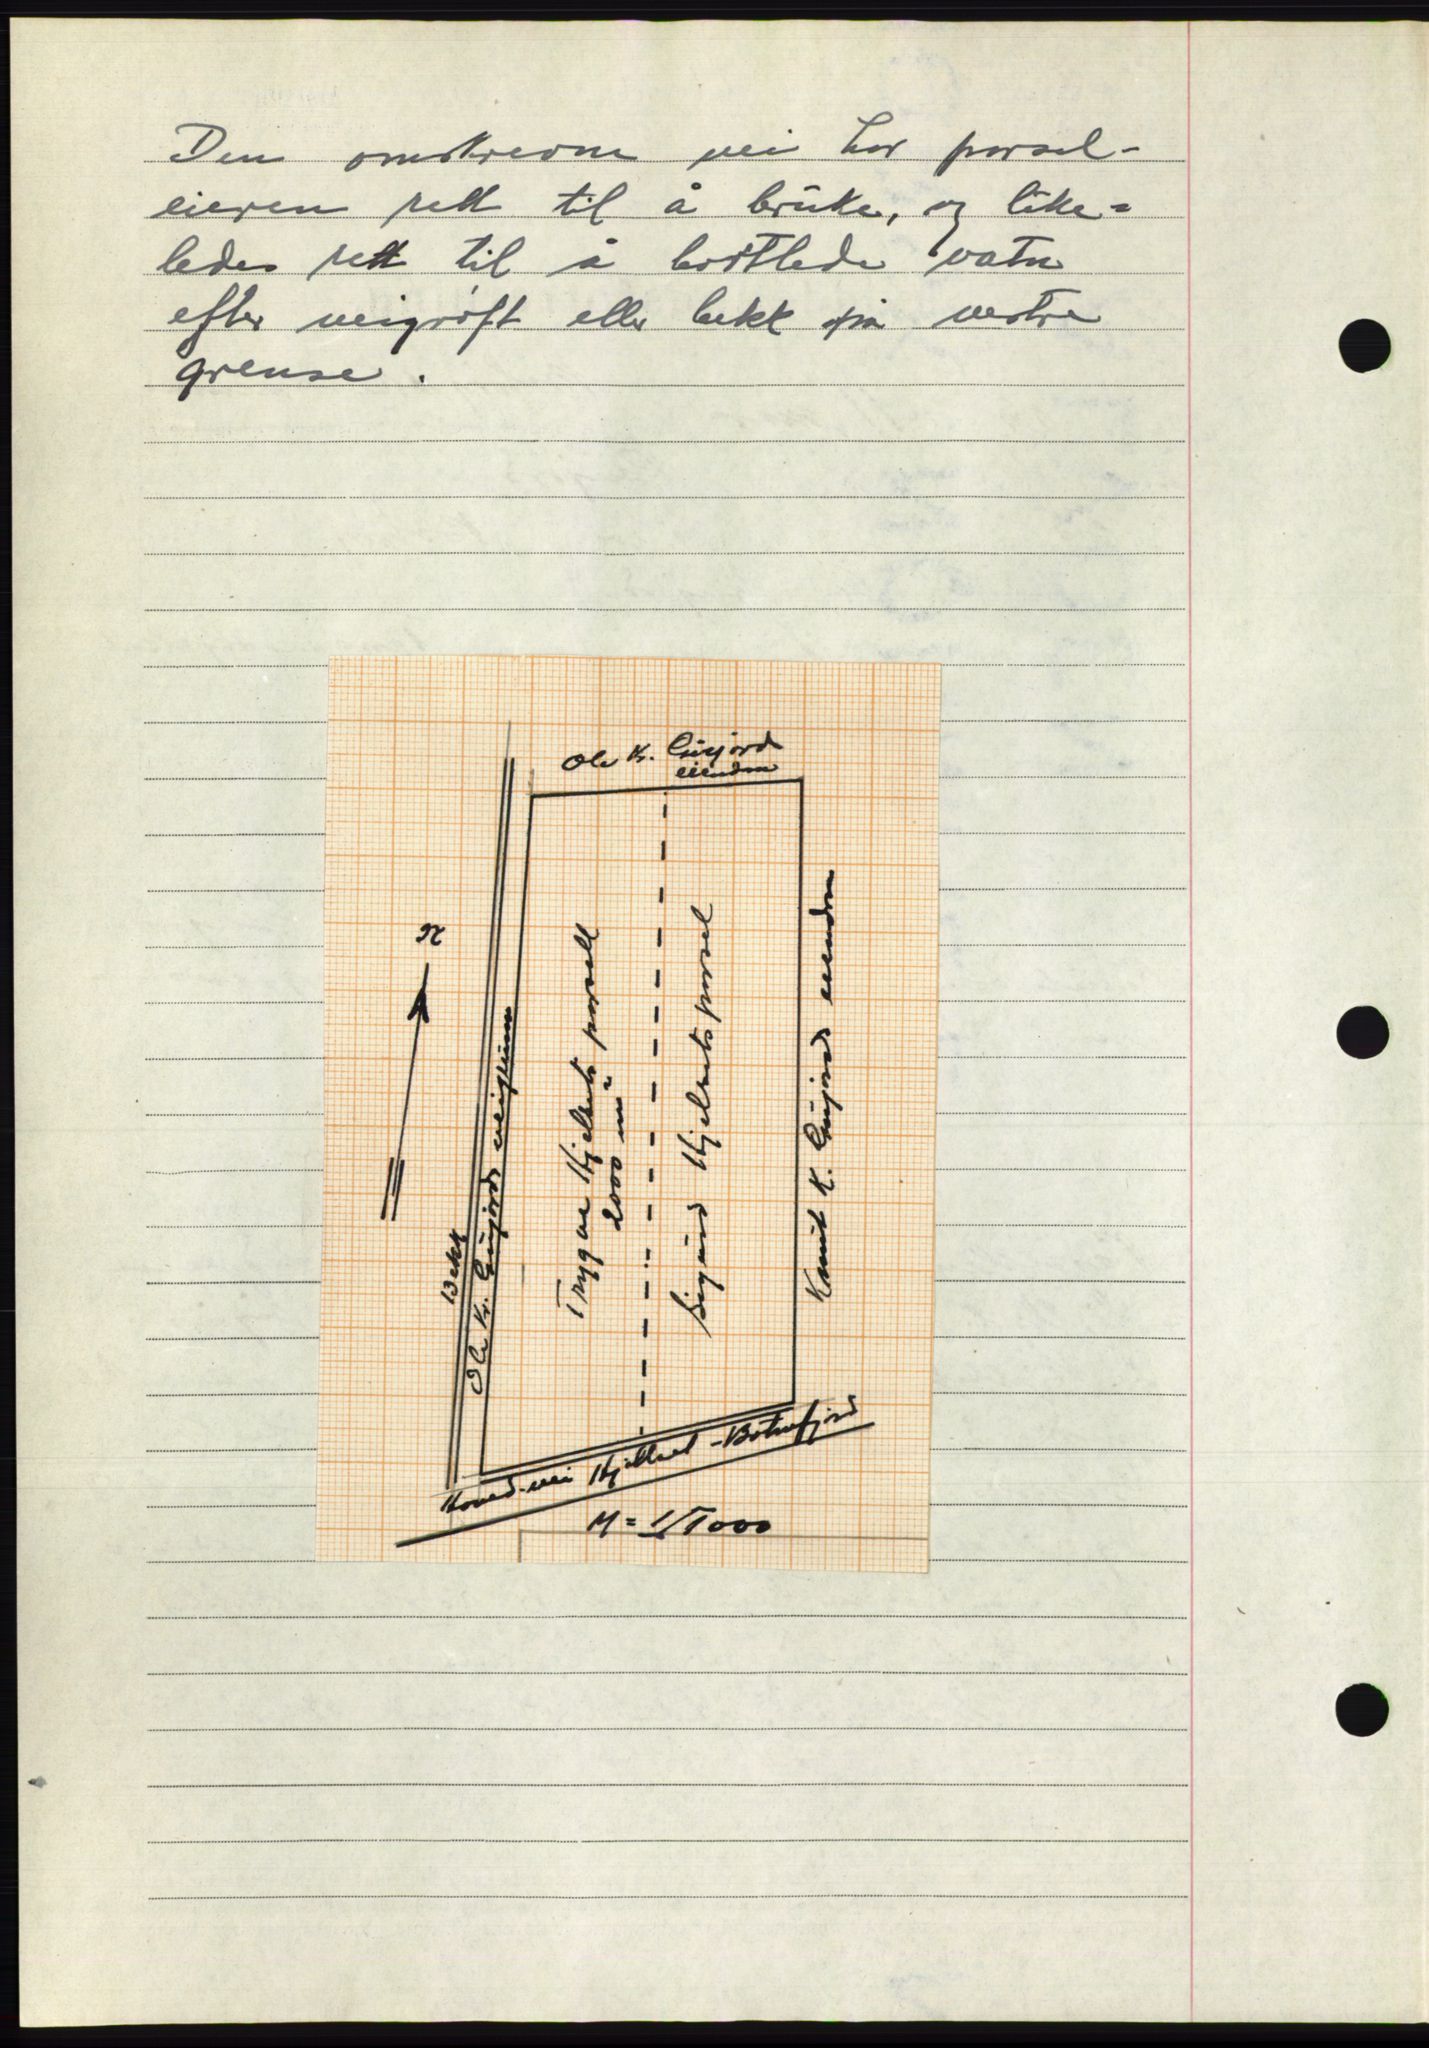 Den omskrevne vei har parsel-
eieren rett til å bruke, og like=
ledes rett til å bortlede vatn
efter veigrøft eller bekk på vestre
grense.
Ole K. Gujord
eiendom
N
Bekk
Ole K. Gujords veigrunn
Trygve Hjelsets parsell
2000 m²
Sigurd Hjelsets parsel
Knut K. Gujords eiendom
Hoved-vei Hjelset - Botnfjord
M = 1/1000